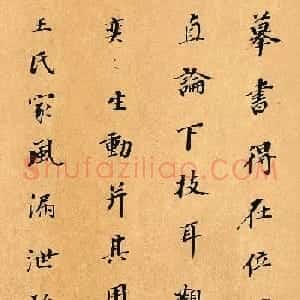 摹書得在位
直論下技耳觀
奕〻生動并其用
王氏家風漏泄
Shufaziliao.com